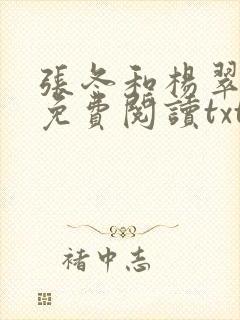 張冬和楊翠
免費閱讀txt
褚中志